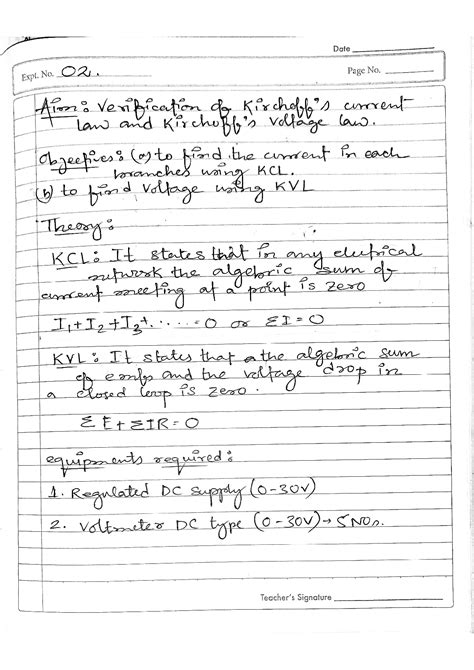 Date
Expt. No. 02.
Page No.
Aim: Verification of Kirchoff's current
law and Kirchoff's voltage law.
Objectives: (a) to find the current in each
branches using KCL.
(b) to find voltage using KVL
Theory:
KCL: It states that in any electrical
network the algebric sum of
current meeting at a point is zero
I1+I2+I3+......=0 or ΣI=0
KVL: It states that the algebric sum
of emfs and the voltage drop in
a closed loop is zero.
ΣE+ΣIR=0
equipments required:
1. Regulated DC supply (0-30V)
2. Voltmeter DC type (0-30V)→5NOs.
Teacher's Signature